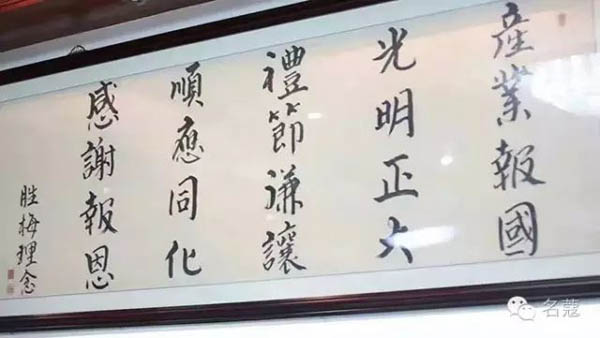 產業報國
光明正大
禮節謙讓
順應同化
感謝報恩
胜梅理念
名蔻